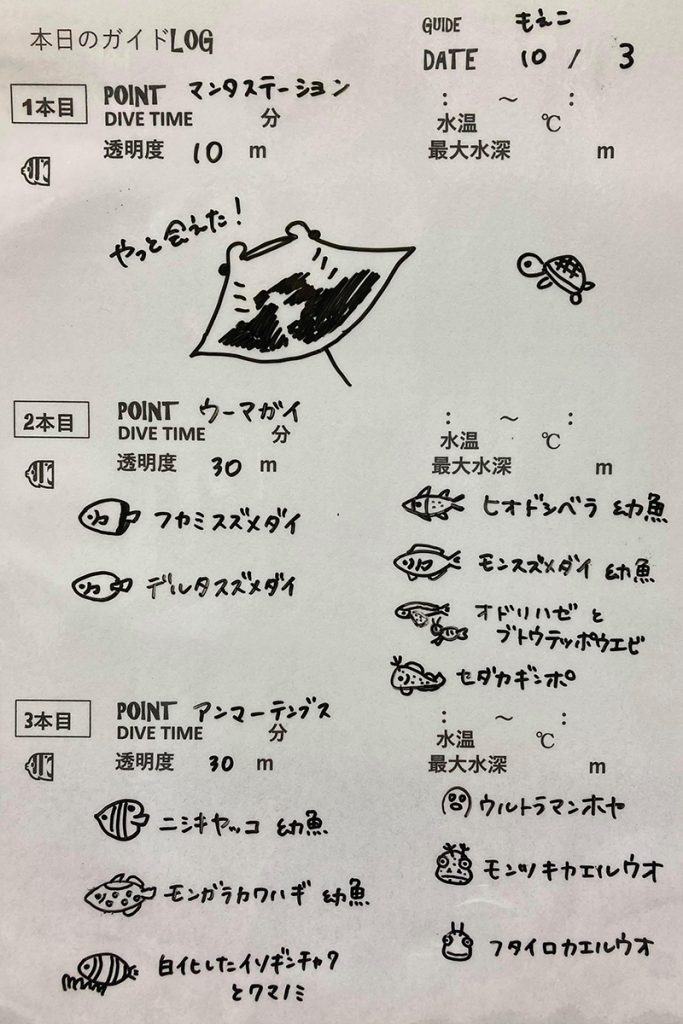 本日のガイドLOG
GUIDE もえこ
DATE 10 / 3
1本目 POINT マンタステーション
: ～ :
DIVE TIME 分
水温 ℃
透明度 10 m
最大水深 m
やっと会えた!
2本目 POINT ウーマガイ
: ～ :
DIVE TIME 分
水温 ℃
透明度 30 m
最大水深 m
フカミスズメダイ
デルタスズメダイ
ヒオドシベラ 幼魚
モンスズメダイ 幼魚
オドリハゼと
ブドウテッポウエビ
セダカギンポ
3本目 POINT アンマーテンブス
: ～ :
DIVE TIME 分
水温 ℃
透明度 30 m
最大水深 m
ニシキヤッコ 幼魚
モンガラカワハギ 幼魚
白化したイソギンチャク
とクマノミ
ウルトラマンホヤ
モンツキカエルウオ
フタイロカエルウオ